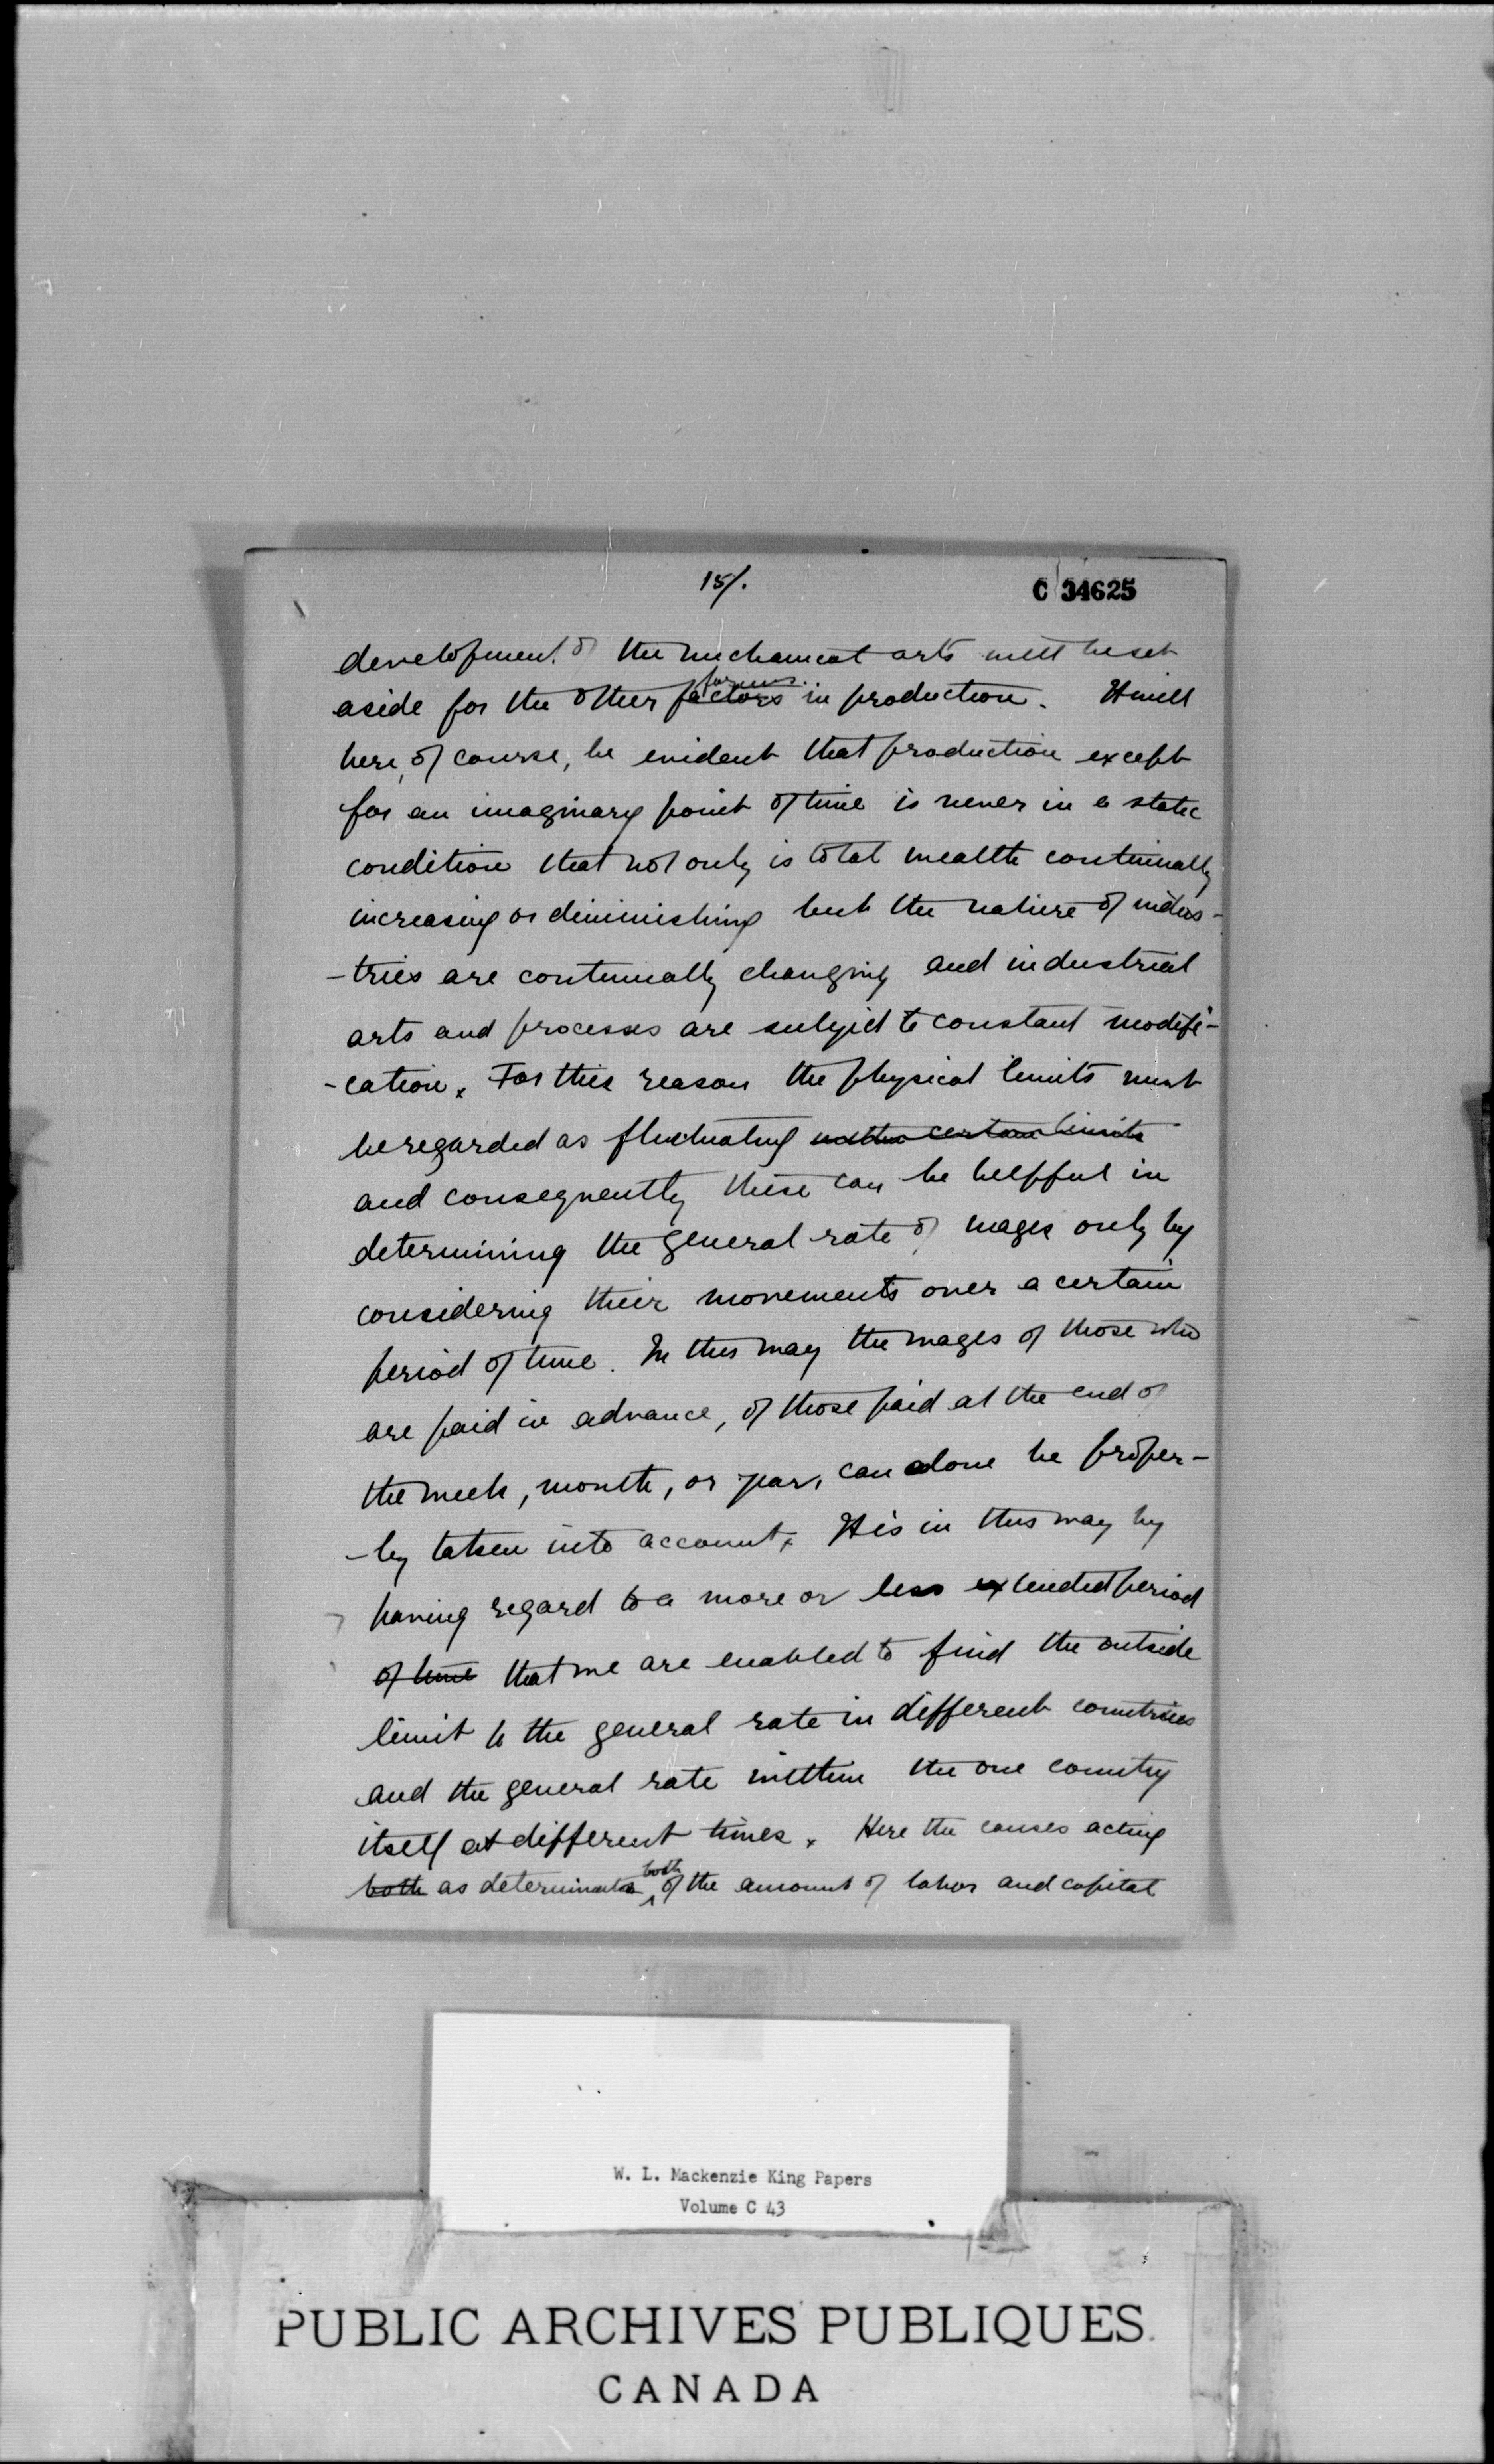 15/.
C 34625
development of the mechanical arts will be set
forms.
aside for the other factors in production. It will
here, of course, be evident that production except
for an imaginary point of time is never in a static
condition that not only is total wealth continually
increasing or diminishing but the nature of indus-
-tries are continually changing and industrial
arts and processes are subject to constant modifi-
-cation. For this reason the physical limits must
be regarded as fluctuating within certain limits
and consequently these can be helpful in
determining the general rate of wages only by
considering their movements over a certain
period of time. In this way the wages of those who
are paid in advance, of those paid at the end of
the week, month, or year, can alone be proper-
-ly taken into account. It is in this way by
having regard to a more or less extended period
of time that we are enabled to find the outside
limit to the general rate in different countries
and the general rate within the one country
itself at different times. Here the causes acting
both
both as determinate of the amount of labor and capital
W. L. Mackenzie King Papers
Volume C 43
PUBLIC ARCHIVES PUBLIQUES
CANADA